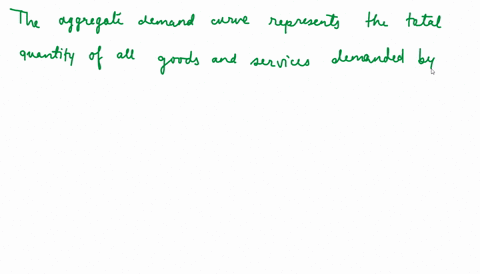 The aggregate demand curve represents the total
quantity of all goods and services demanded by